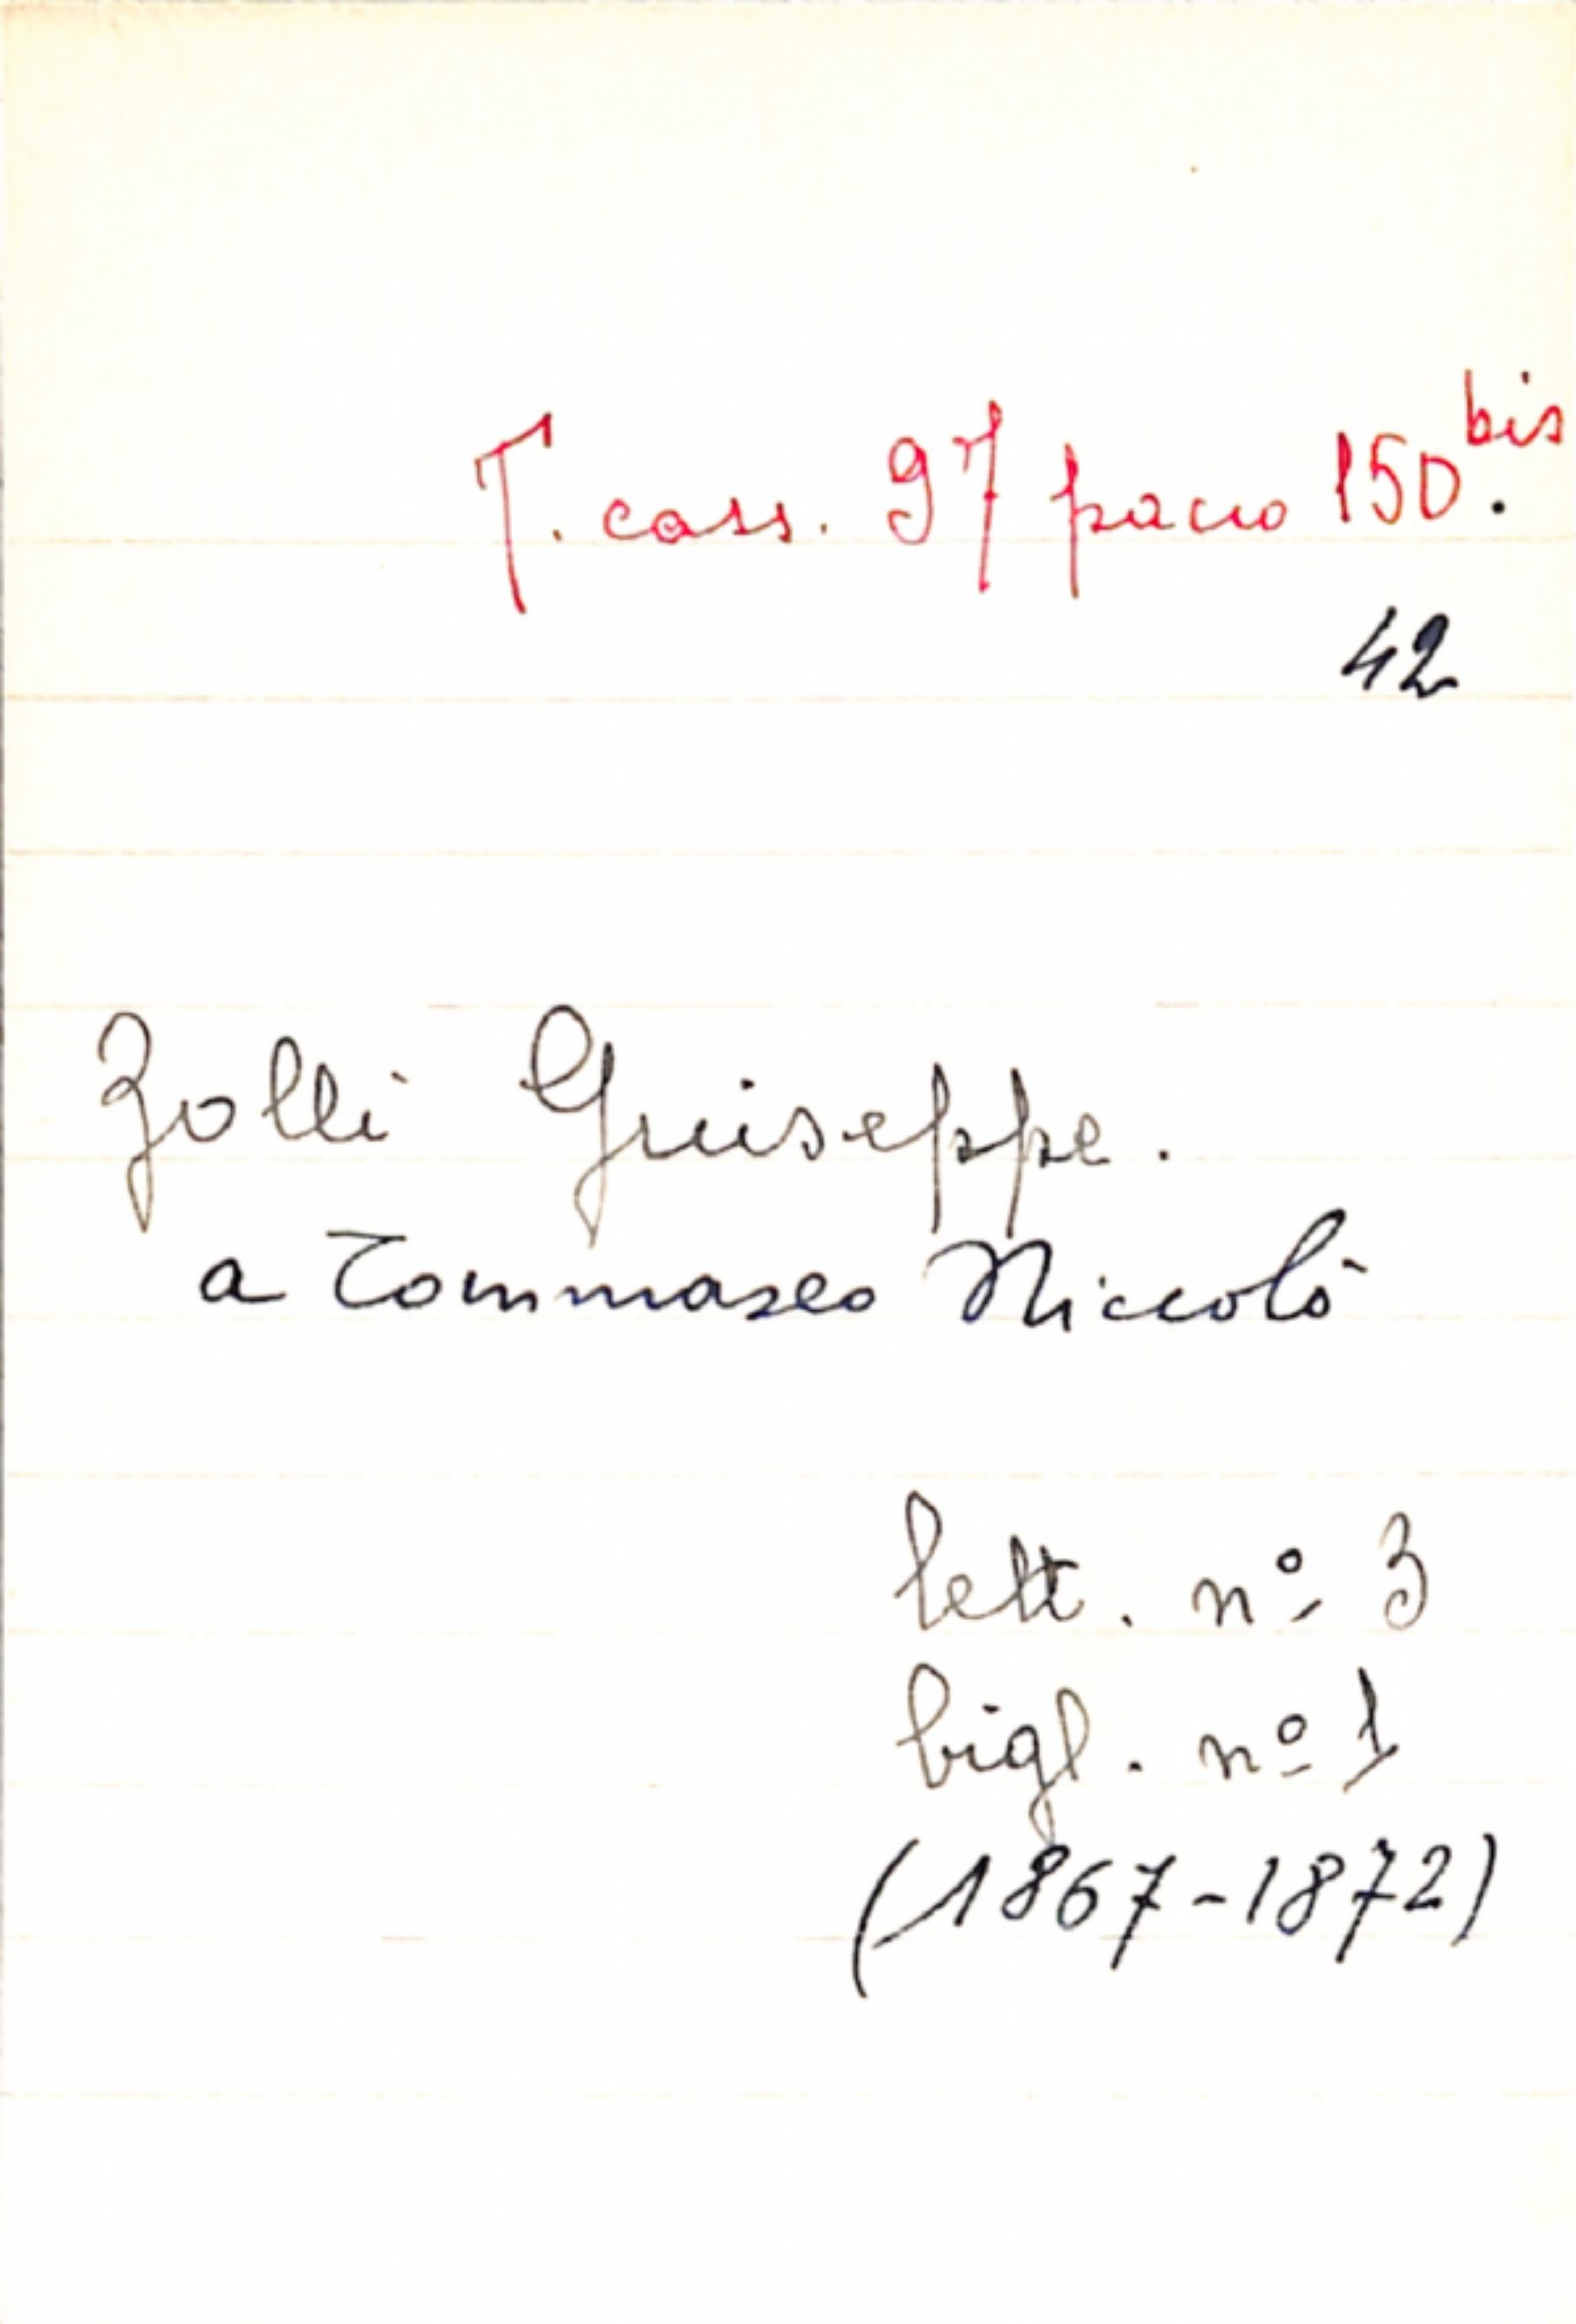 T. cass. 97 pacco 150 bis.
42
Zolli Giuseppe.
a Tommaseo Niccolò
lett. nº 3
bigl. nº 1
(1867-1872)